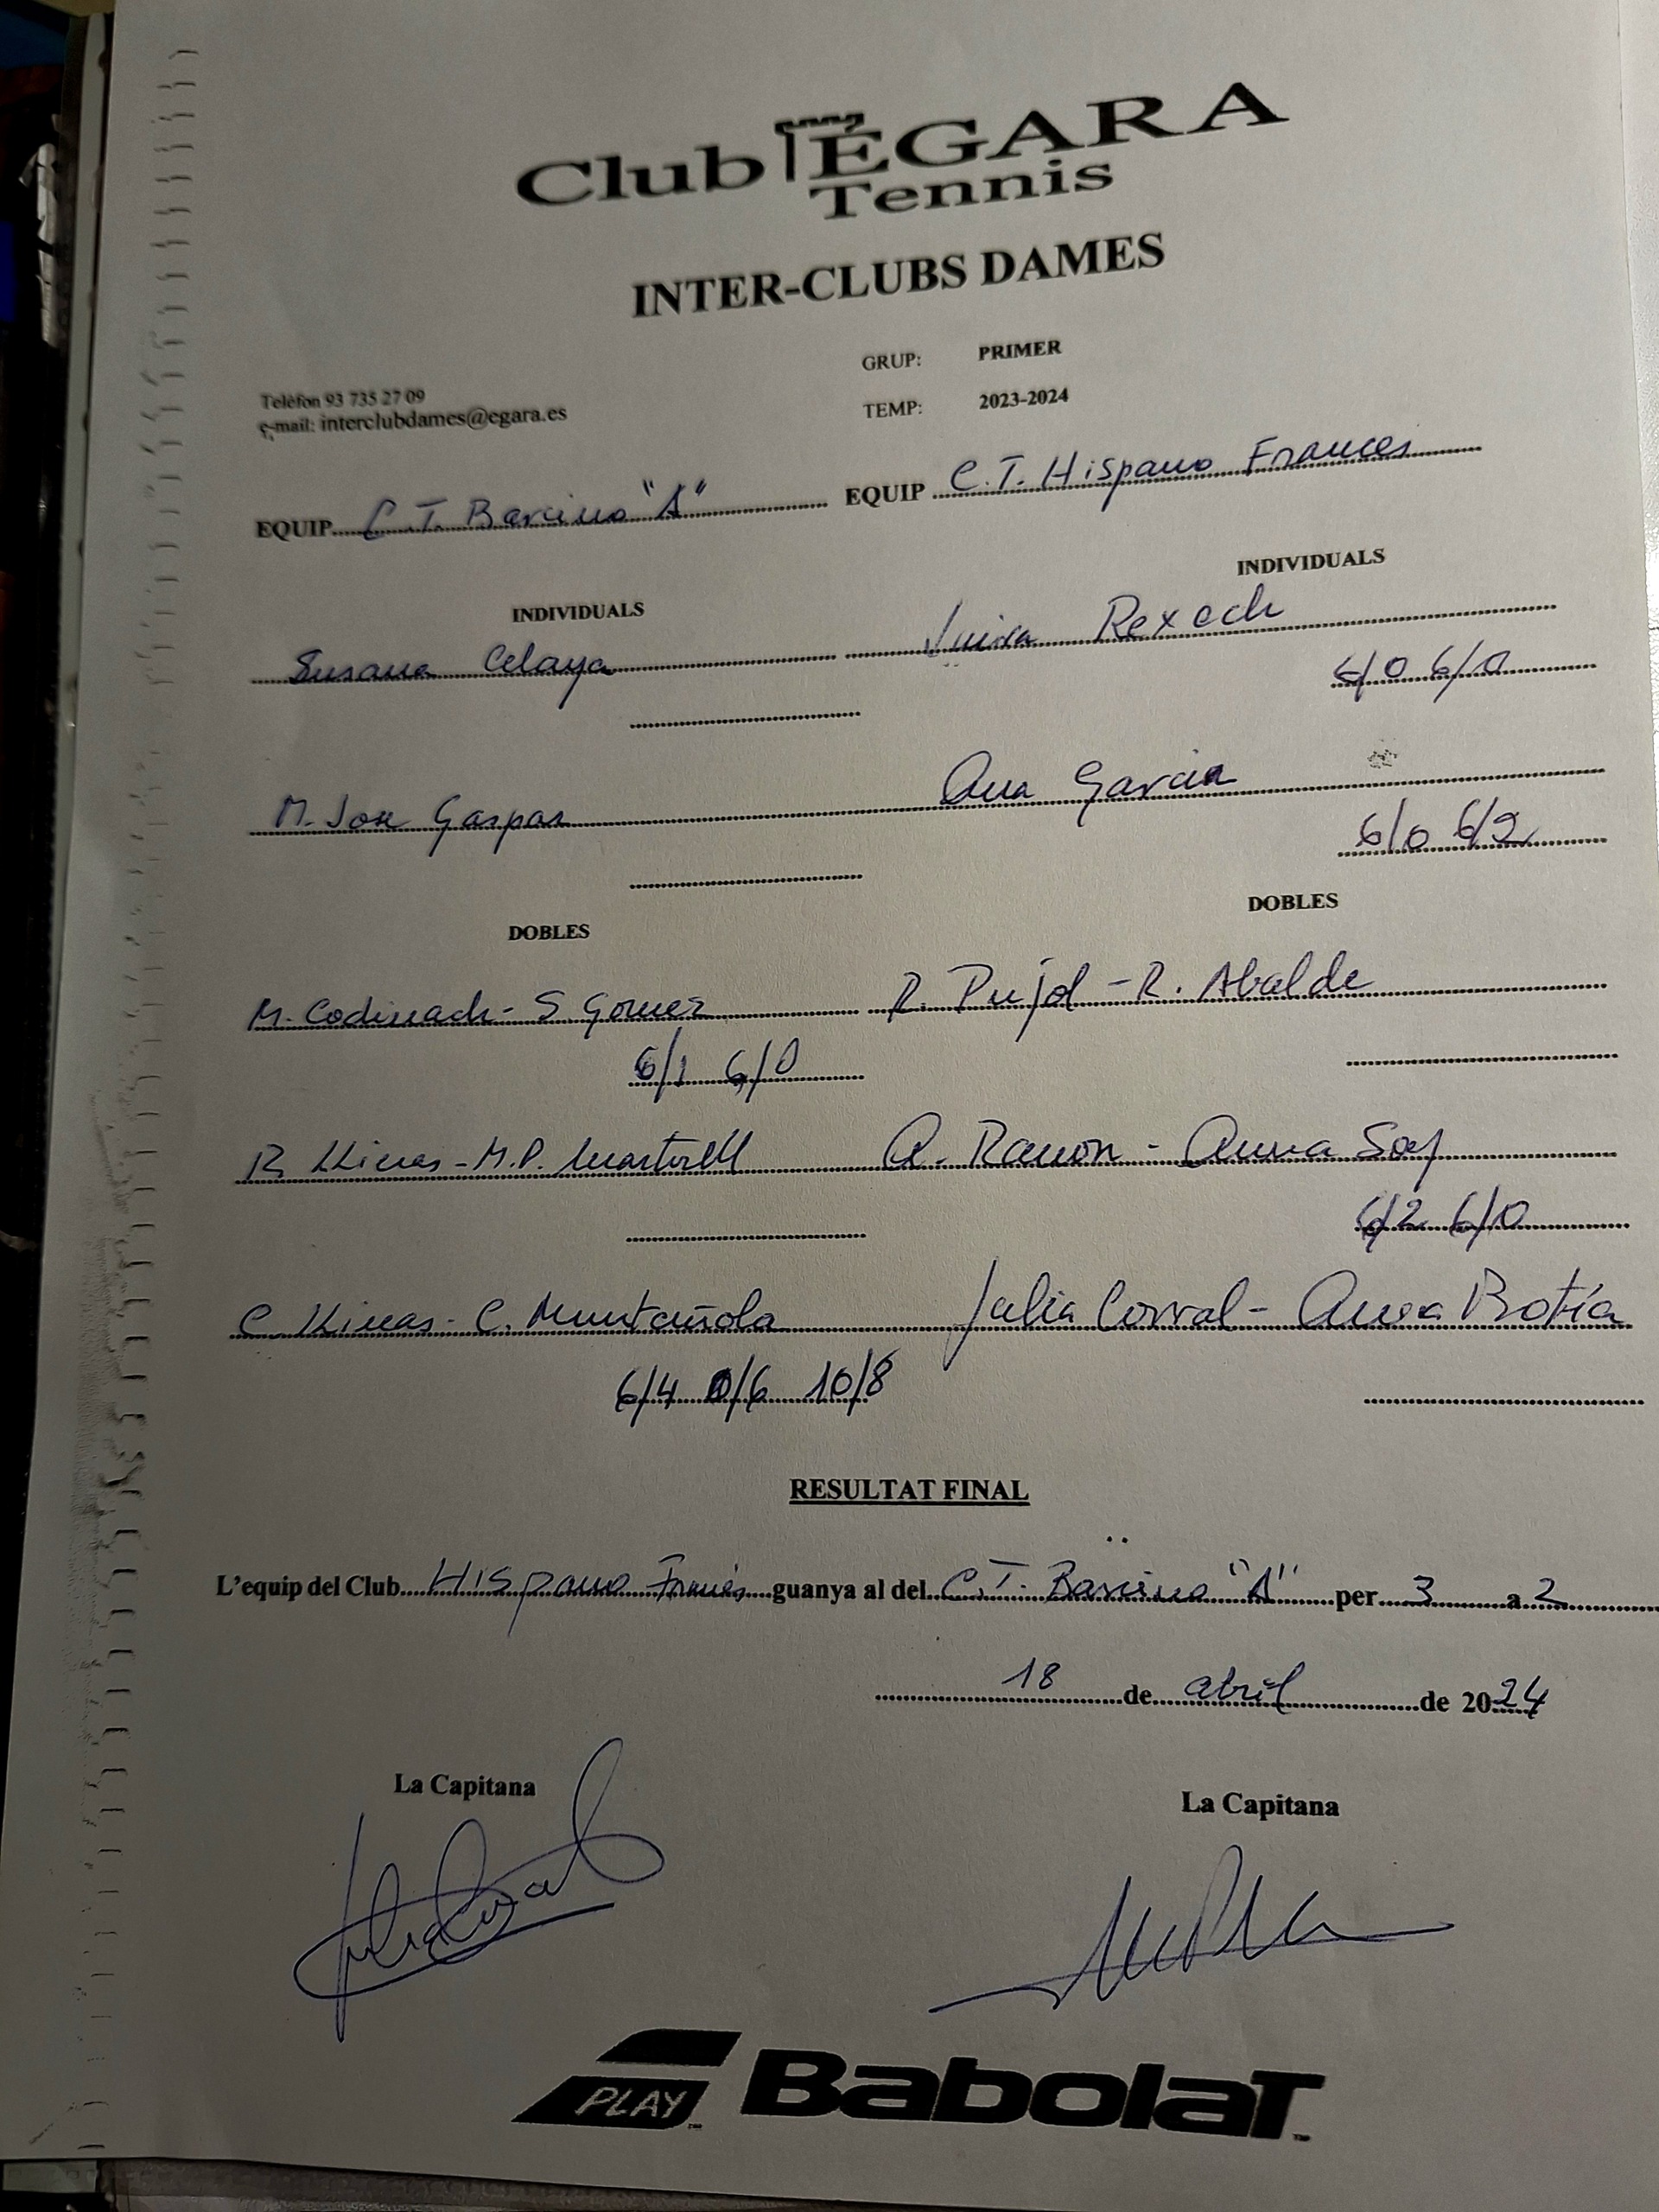 Club ÉGARA
Tennis
INTER-CLUBS DAMES
GRUP: PRIMER
TEMP: 2023-2024
Telèfon 93 735 27 09
e-mail: interclubdames@egara.es
EQUIP C.T. Barcino "A" EQUIP C.T. Hispano Frances
INDIVIDUALS INDIVIDUALS
Susana Celaya Rexach
6/0 6/0
M. Jose Gaspar Ana Garcia
6/0 6/2
DOBLES DOBLES
M. Codinach - S. Gomez R. Pujol - R. Abalde
6/1 6/0
R. Llinas - M.P. Martorell A. Ramon - Anna
6/2 6/0
C. Llinas - C. Muntañola Julia Corral - Anna Botía
6/4 0/6 10/8
RESULTAT FINAL
L'equip del Club Hispano Francés guanya al del C.T. Barcino "A" per 3 a 2
18 de abril de 2024
La Capitana La Capitana
PLAY BabolaT